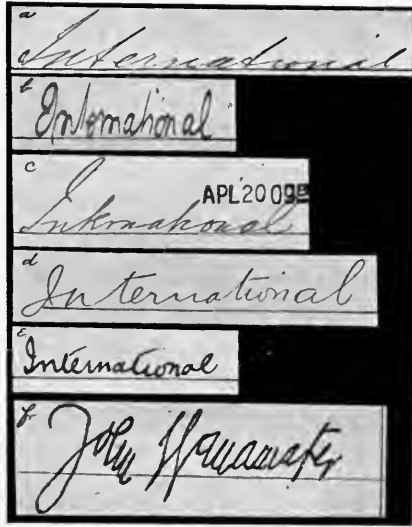 a
International
b
International
c
APL'20 09
International
d
International
e
International
f
John Wanamaker